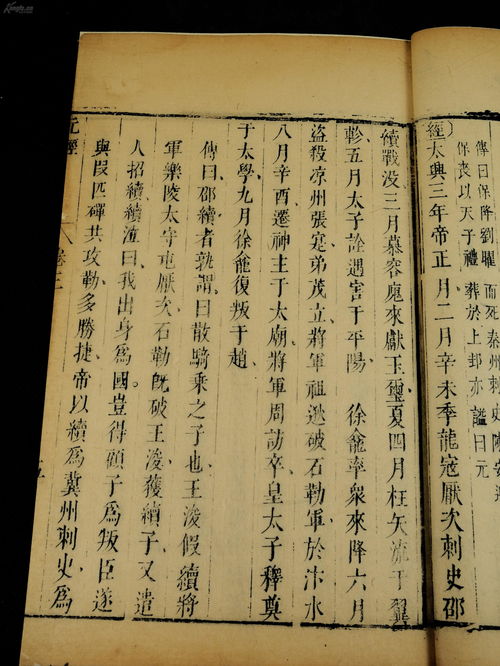 傳曰保降劉曜而死秦州刺史陳安迎
保喪以天子禮葬於上邽亦謚曰元
經太興三年帝正月二月辛未季龍寇厭次刺史邵
續戰没三月慕容廆來獻玉璽夏四月枉矢流于翼
軫五月太子詮遇害于平陽徐龕率衆來降六月
盜殺凉州張寔弟茂立將軍祖逖破石勒軍於汴水
八月辛酉遷神主于太廟將軍周訪卒皇太子釋奠
于太學九月徐龕復叛于趙
傳曰邵續者孰謂曰散騎乘之子也王浚假續將
軍樂陵太守屯厭次石勒旣破王浚獲續子乂遣
人招續續泣曰我出身爲國豈得顧子爲叛臣遂
與段匹磾共攻勒多勝捷帝以續爲冀州刺史爲
元經
卷三